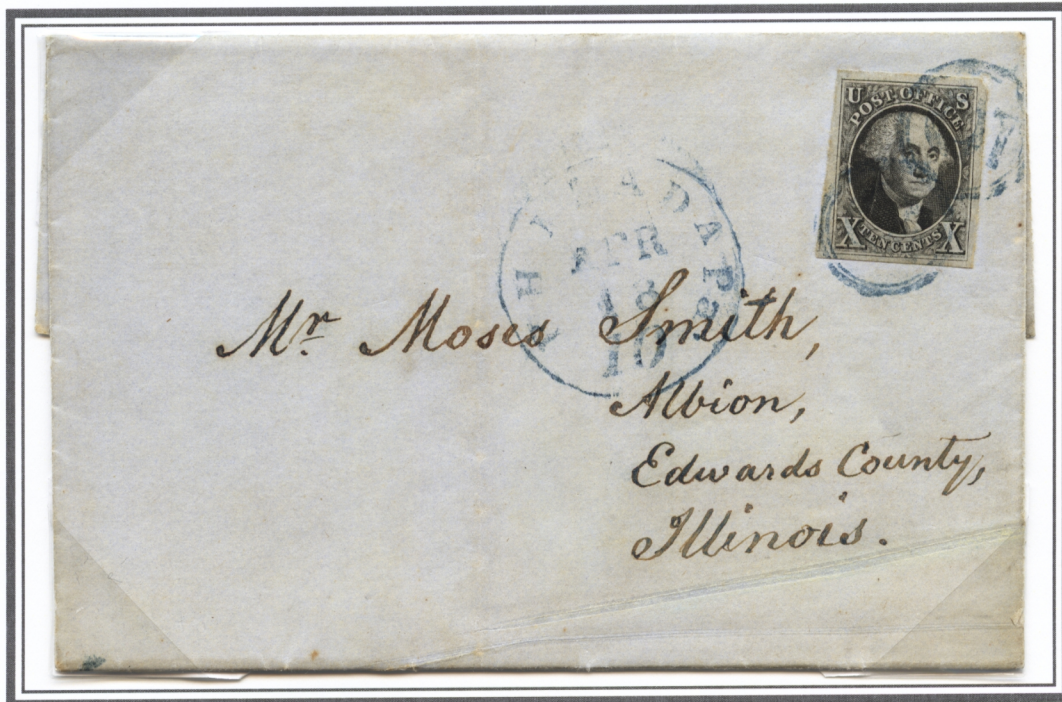 U S
POST OFFICE
X TEN CENTS X
PHILADA Pa
APR
18
10
Mr Moses Smith,
Albion,
Edwards County,
Illinois.